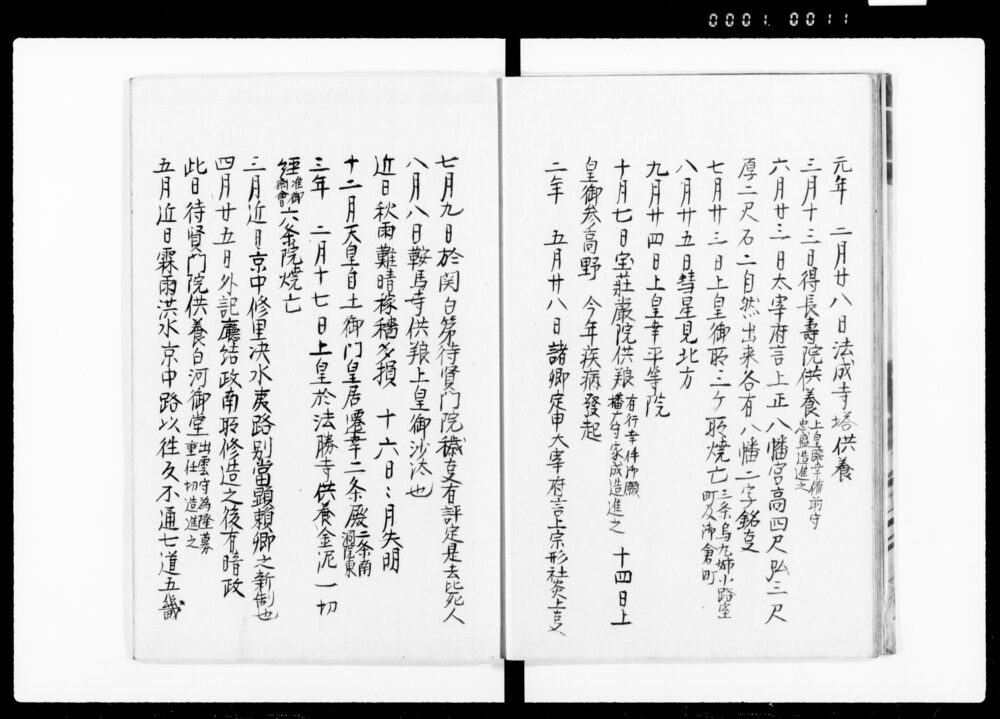 0001.0011
元年 二月廿八日法成寺塔供養
三月十三日得長壽院供養上皇臨幸備前守忠盛造進之
六月廿三日太宰府言上正八幡宮高四尺弘三尺
厚二尺石二自然出来各有八幡二字銘事
七月廿三日上皇御所三ヶ所焼亡三条烏丸姉小路室町及御倉町
八月廿五日彗星見北方
九月廿四日上皇幸平等院
十月七日宝荘厳院供養有行幸件御願播磨守家成造進之 十四日上
皇御参高野 今年疾病發起
二年 五月廿八日諸卿定申大宰府言上宗形社炎上事
七月九日於関白第待賢門院穢事有評定是去比死人
八月八日鞍馬寺供養上皇御沙汰也
近日秋雨難晴稼穡多損 十六日〻月失明
十二月天皇自土御門皇居遷幸二条殿二条南洞院東
三年 二月十七日上皇於法勝寺供養金泥一切
經准御斎會六条院焼亡
三月近日京中修里决水夷路別當顕頼卿之新制也
四月廿五日外記廳結政南所修造之後有晴政
此日待賢門院供養白河御堂出雲守為隆募重任切造進之
五月近日霖雨洪水京中路以往反不通七道五畿